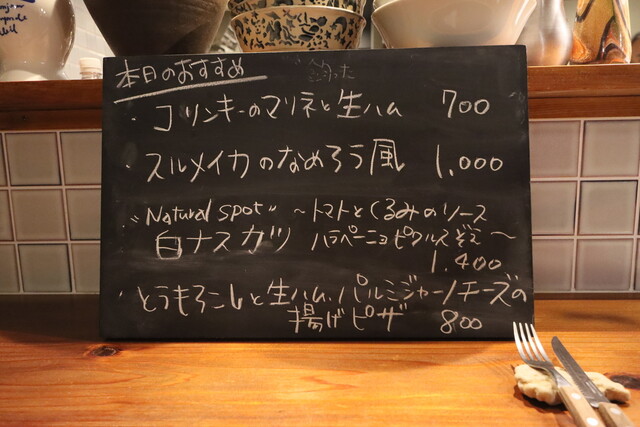 本日のおすすめ
・コリンキーのマリネと生ハム 700
・スルメイカのなめろう風 1,000
"Natural spot" ~トマトとくるみのソース
白ナスカツ ハラペーニョピクルス添え~
1,400
・とうもろこしと生ハム、パルミジャーノチーズの
揚げピザ 800